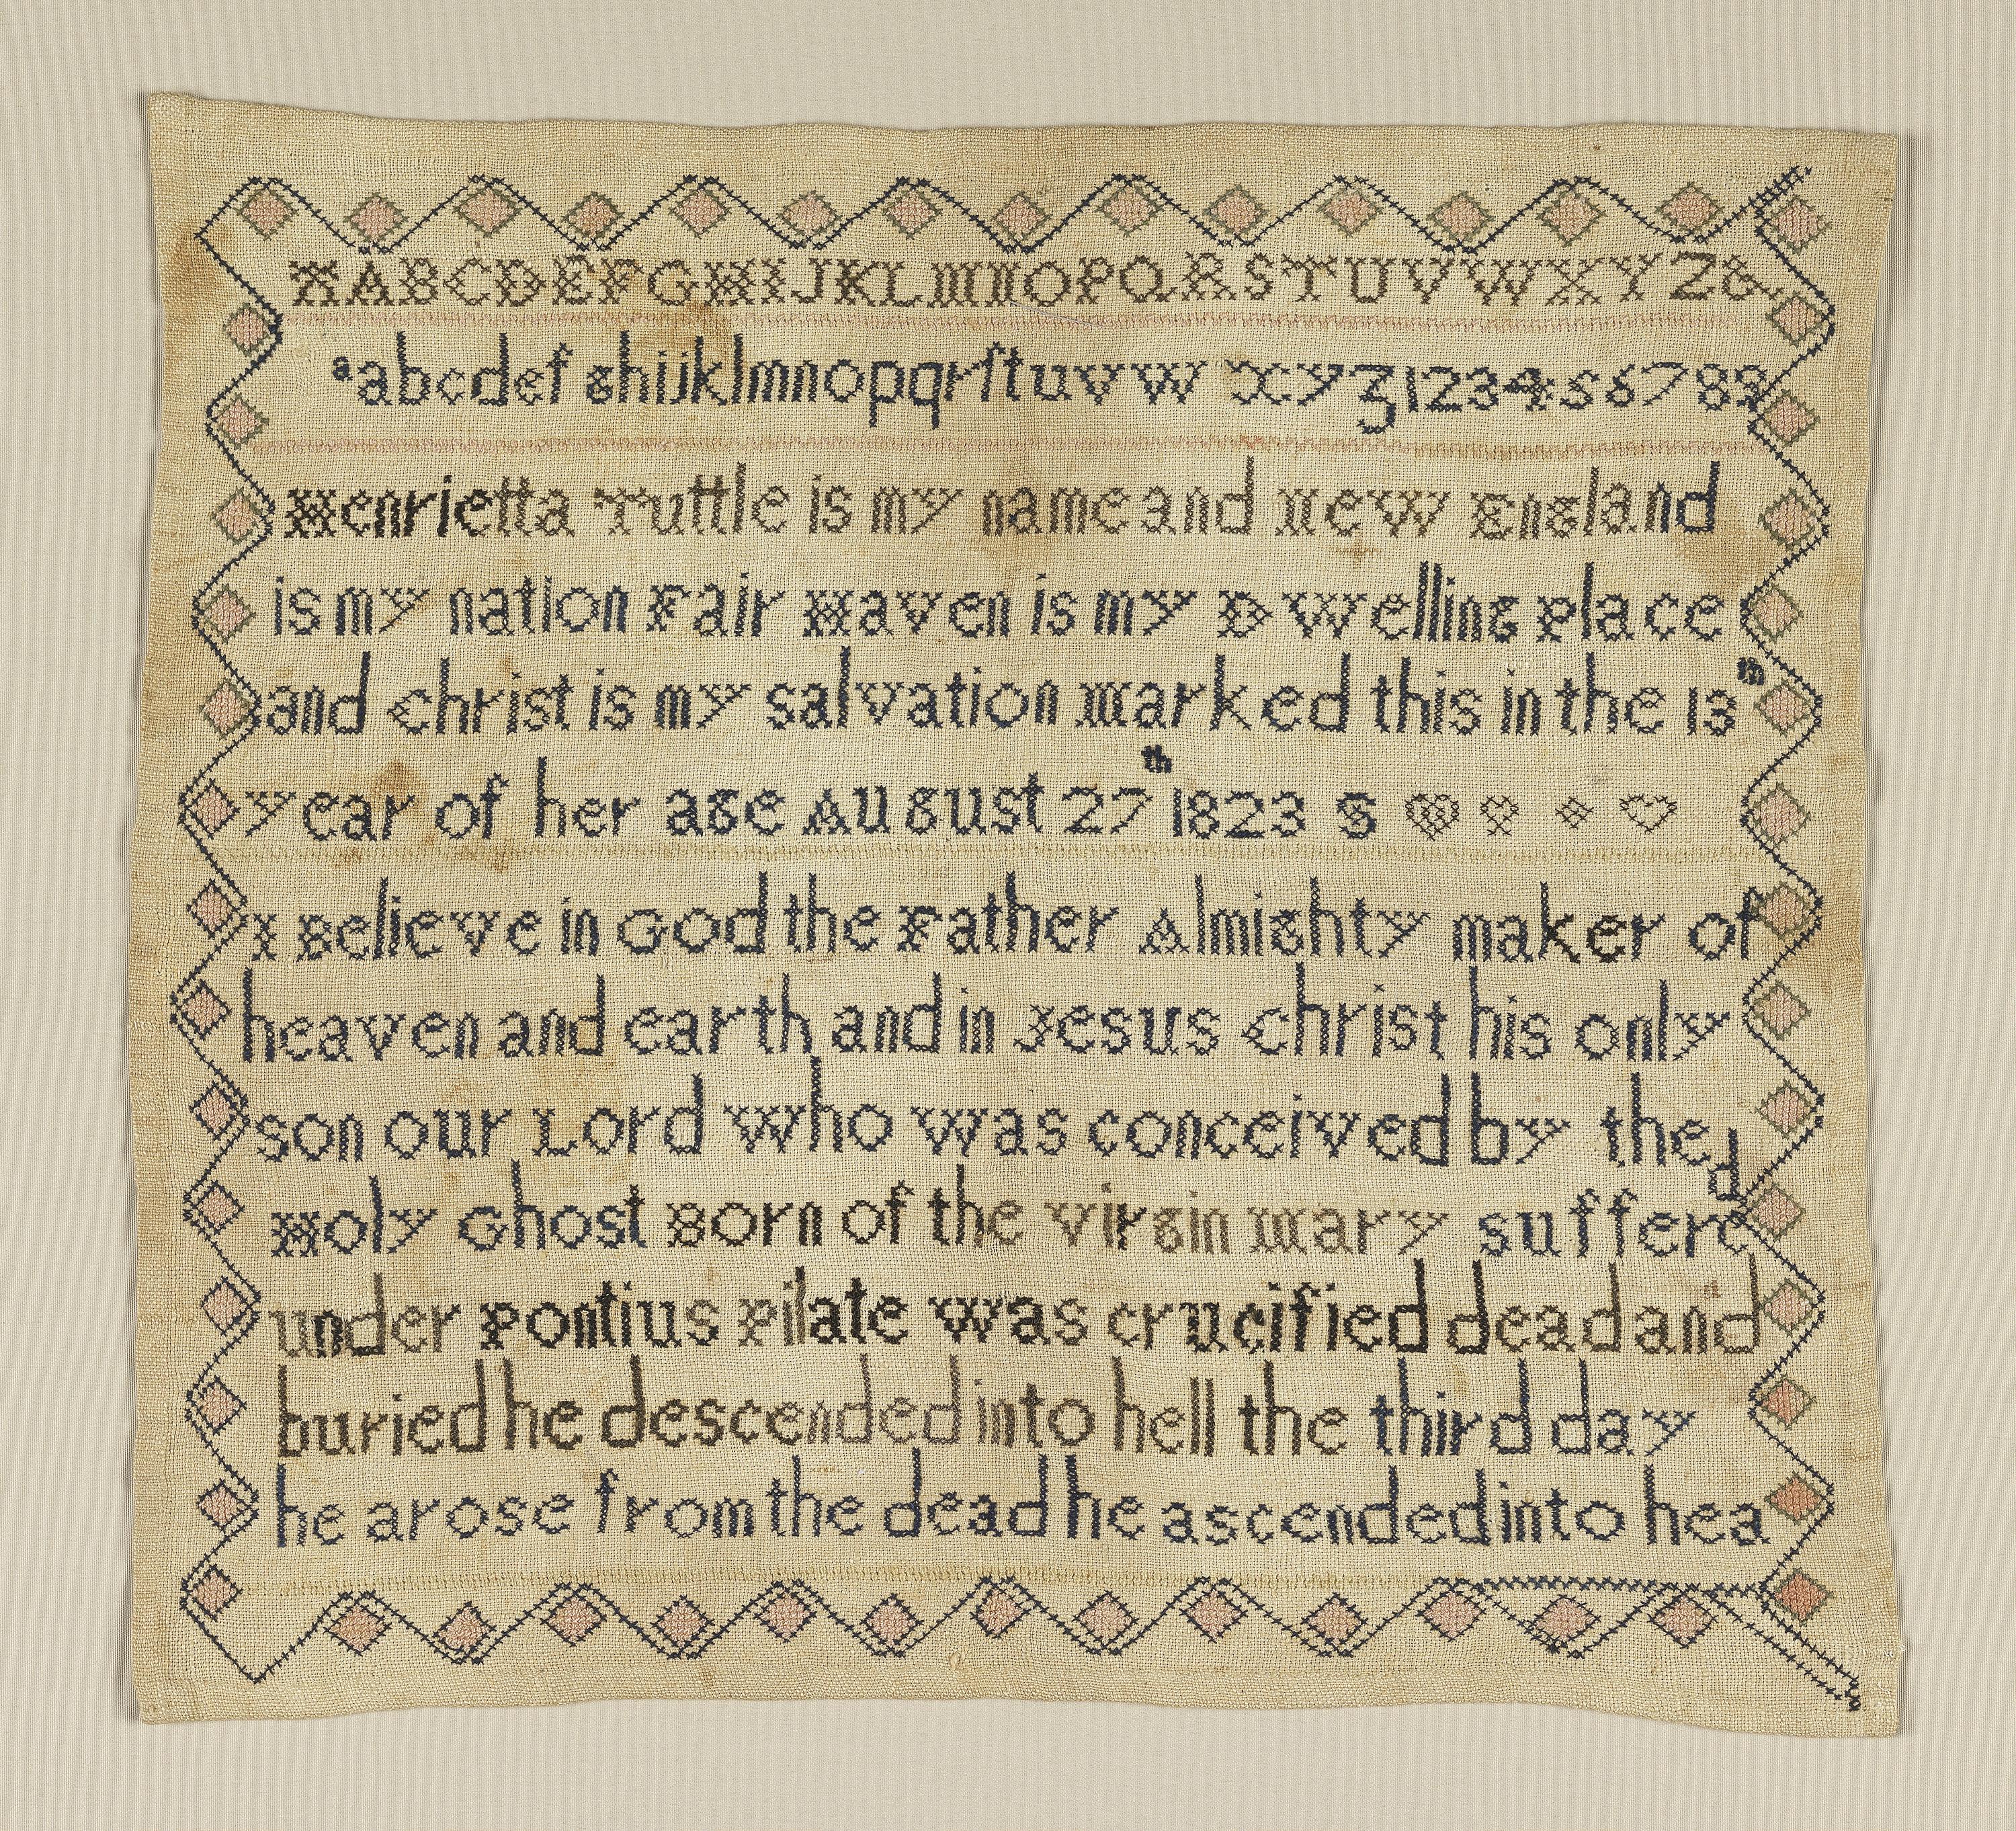 HABCDEFGHIJKLMNOPQRSTUVWXYZ&
aabcdefghijklmnopqrſtuvwxyz123456789
Henrietta Tuttle is my name and New England
is my nation Fair Haven is my Dwelling Place
and christ is my salvation Marked this in the 13th
year of her age August 27th 1823 S
I Believe in God the Father Almighty maker of
heaven and earth and in Jesus christ his only
son our Lord who was conceived by the
Holy Ghost Born of the virgin Mary suffered
under Pontius Pilate was crucified dead and
buried he descended into hell the third day
he arose from the dead he ascended into hea